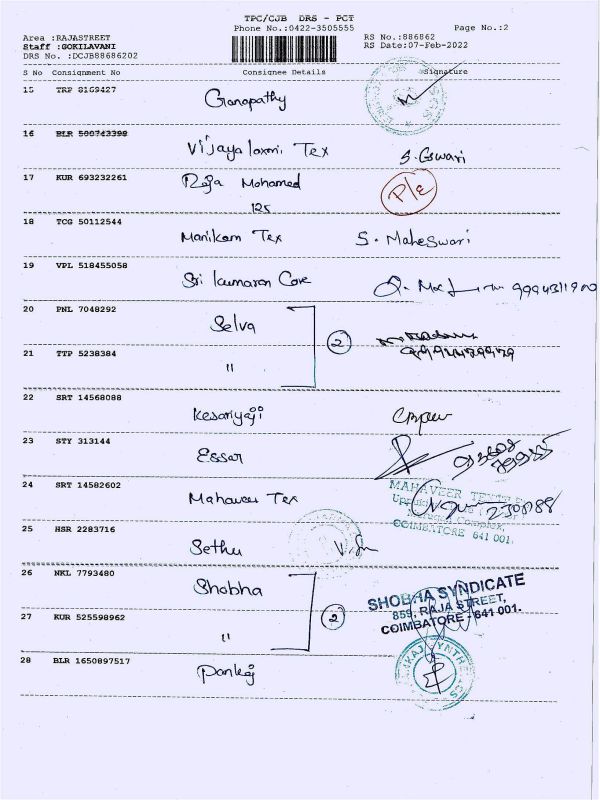 TPC/CJB DRS - PCT
Phone No.:0422-3505555
Page No.:2
Area :RAJASTREET
Staff :GOKILAVANI
DRS No. :DCJB88686202
RS No.:886862
RS Date:07-Feb-2022
S No Consignment No Consignee Details Signature
15 TRP 8169427 Ganapathy
16 BLR 500743398 Vijaya laxmi Tex S. Eswari
17 KUR 693232261 Raja Mohamed P/E
125
18 TCG 50112544 Manikam Tex S. Maheswari
19 VPL 518455058 Sri Kumaran Core
20 PNL 7048292 Selva
2
21 TTP 5238384 "
22 SRT 14568088 Kesariyaji
23 STY 313144 Essar
24 SRT 14582602 Mahaveer Tex
MAHAVEER
Complex,
COIMBATORE 641 001.
25 HSR 2283716 Sethu
26 NKL 7793480 Shobha
SHOBHA SYNDICATE
859, RAJA STREET,
COIMBATORE - 641 001.
2
27 KUR 525598962 "
28 BLR 1650897517 Pankaj